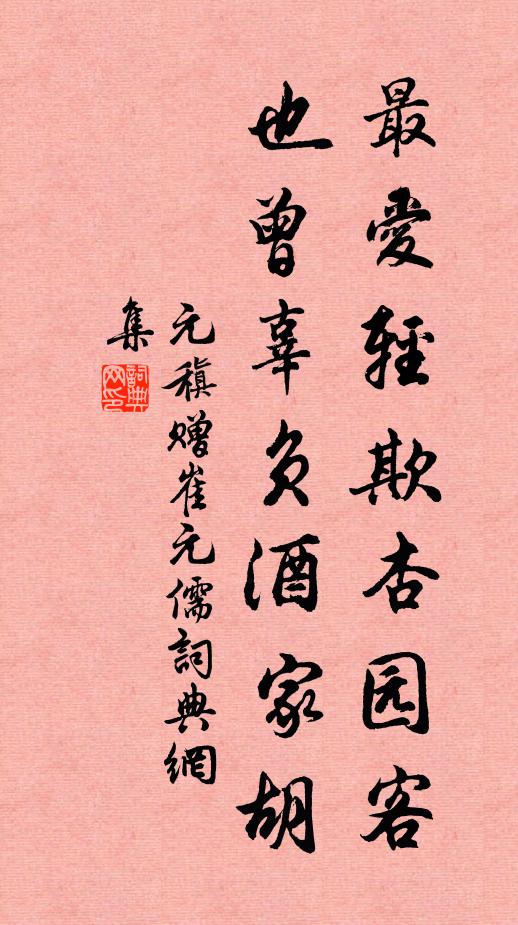 最愛輕欺杏园客
也曾辜负酒家胡
元稹赠崔元儒詞典網
集
詞典网印